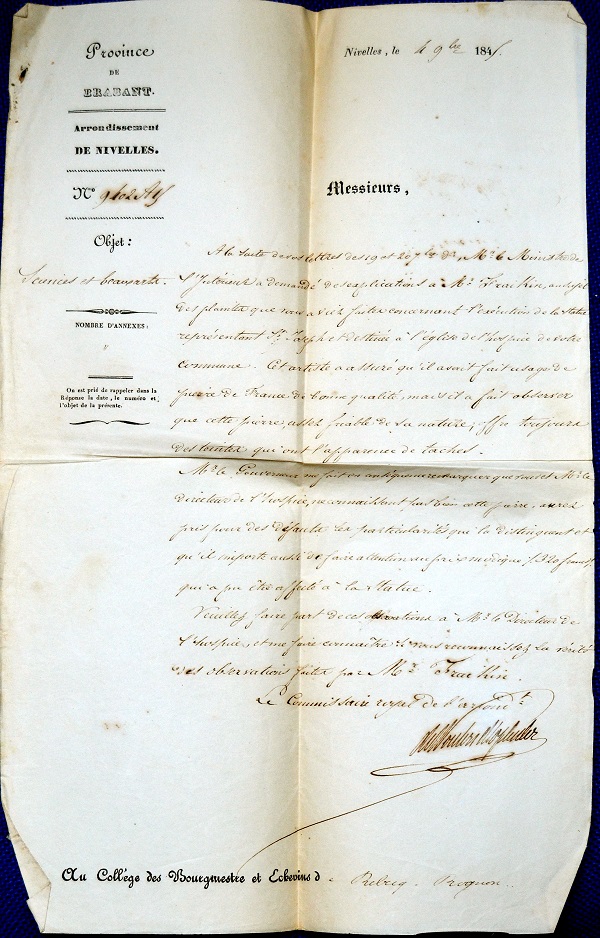 Province
DE
BRABANT.
Arrondissement
DE NIVELLES.
N° 9402 A/5
Objet:
Sciences et beaux arts.
NOMBRE D'ANNEXES:
"
On est prié de rappeler dans la
Réponse la date, le numéro et
l'objet de la présente.
Nivelles, le 4 9bre 1845.
Messieurs,
A la suite de vos lettres des 19 et 20 7bre Mr. le Ministre de
l'Intérieur a demandé des explications à Mr. Fraikin, au sujet
des plaintes que vous aviez faites concernant l'exécution de la Statue
représentant St. Joseph et destinée à l'église de l'hospice de votre
commune. Cet artiste a assuré qu'il avait fait usage de
pierre de France de bonne qualité, mais il a fait observer
que cette pierre, assez friable de sa nature, offre toujours
des teintes qui ont l'apparence de taches.
Mr. le Gouverneur me fait en remarquer que vous et Mr. le
Directeur de l'hospice, ne connaissant pas bien cette pierre, aurez
pris pour des défauts les particularités qui la distinguent et
qu'il importe aussi de faire attention au prix modique, 320 francs,
qui a pu être affecté à la Statue.
Veuillez faire part de ces observations à Mr. le Directeur de
l'hospice, et me faire connaître si vous reconnaissez la vérité
des observations faites par Mr. Fraikin.
Le Commissaire royal de l'arrondt.
Au Collége des Bourgmestre et Echevins d e Rebecq-Rognon.